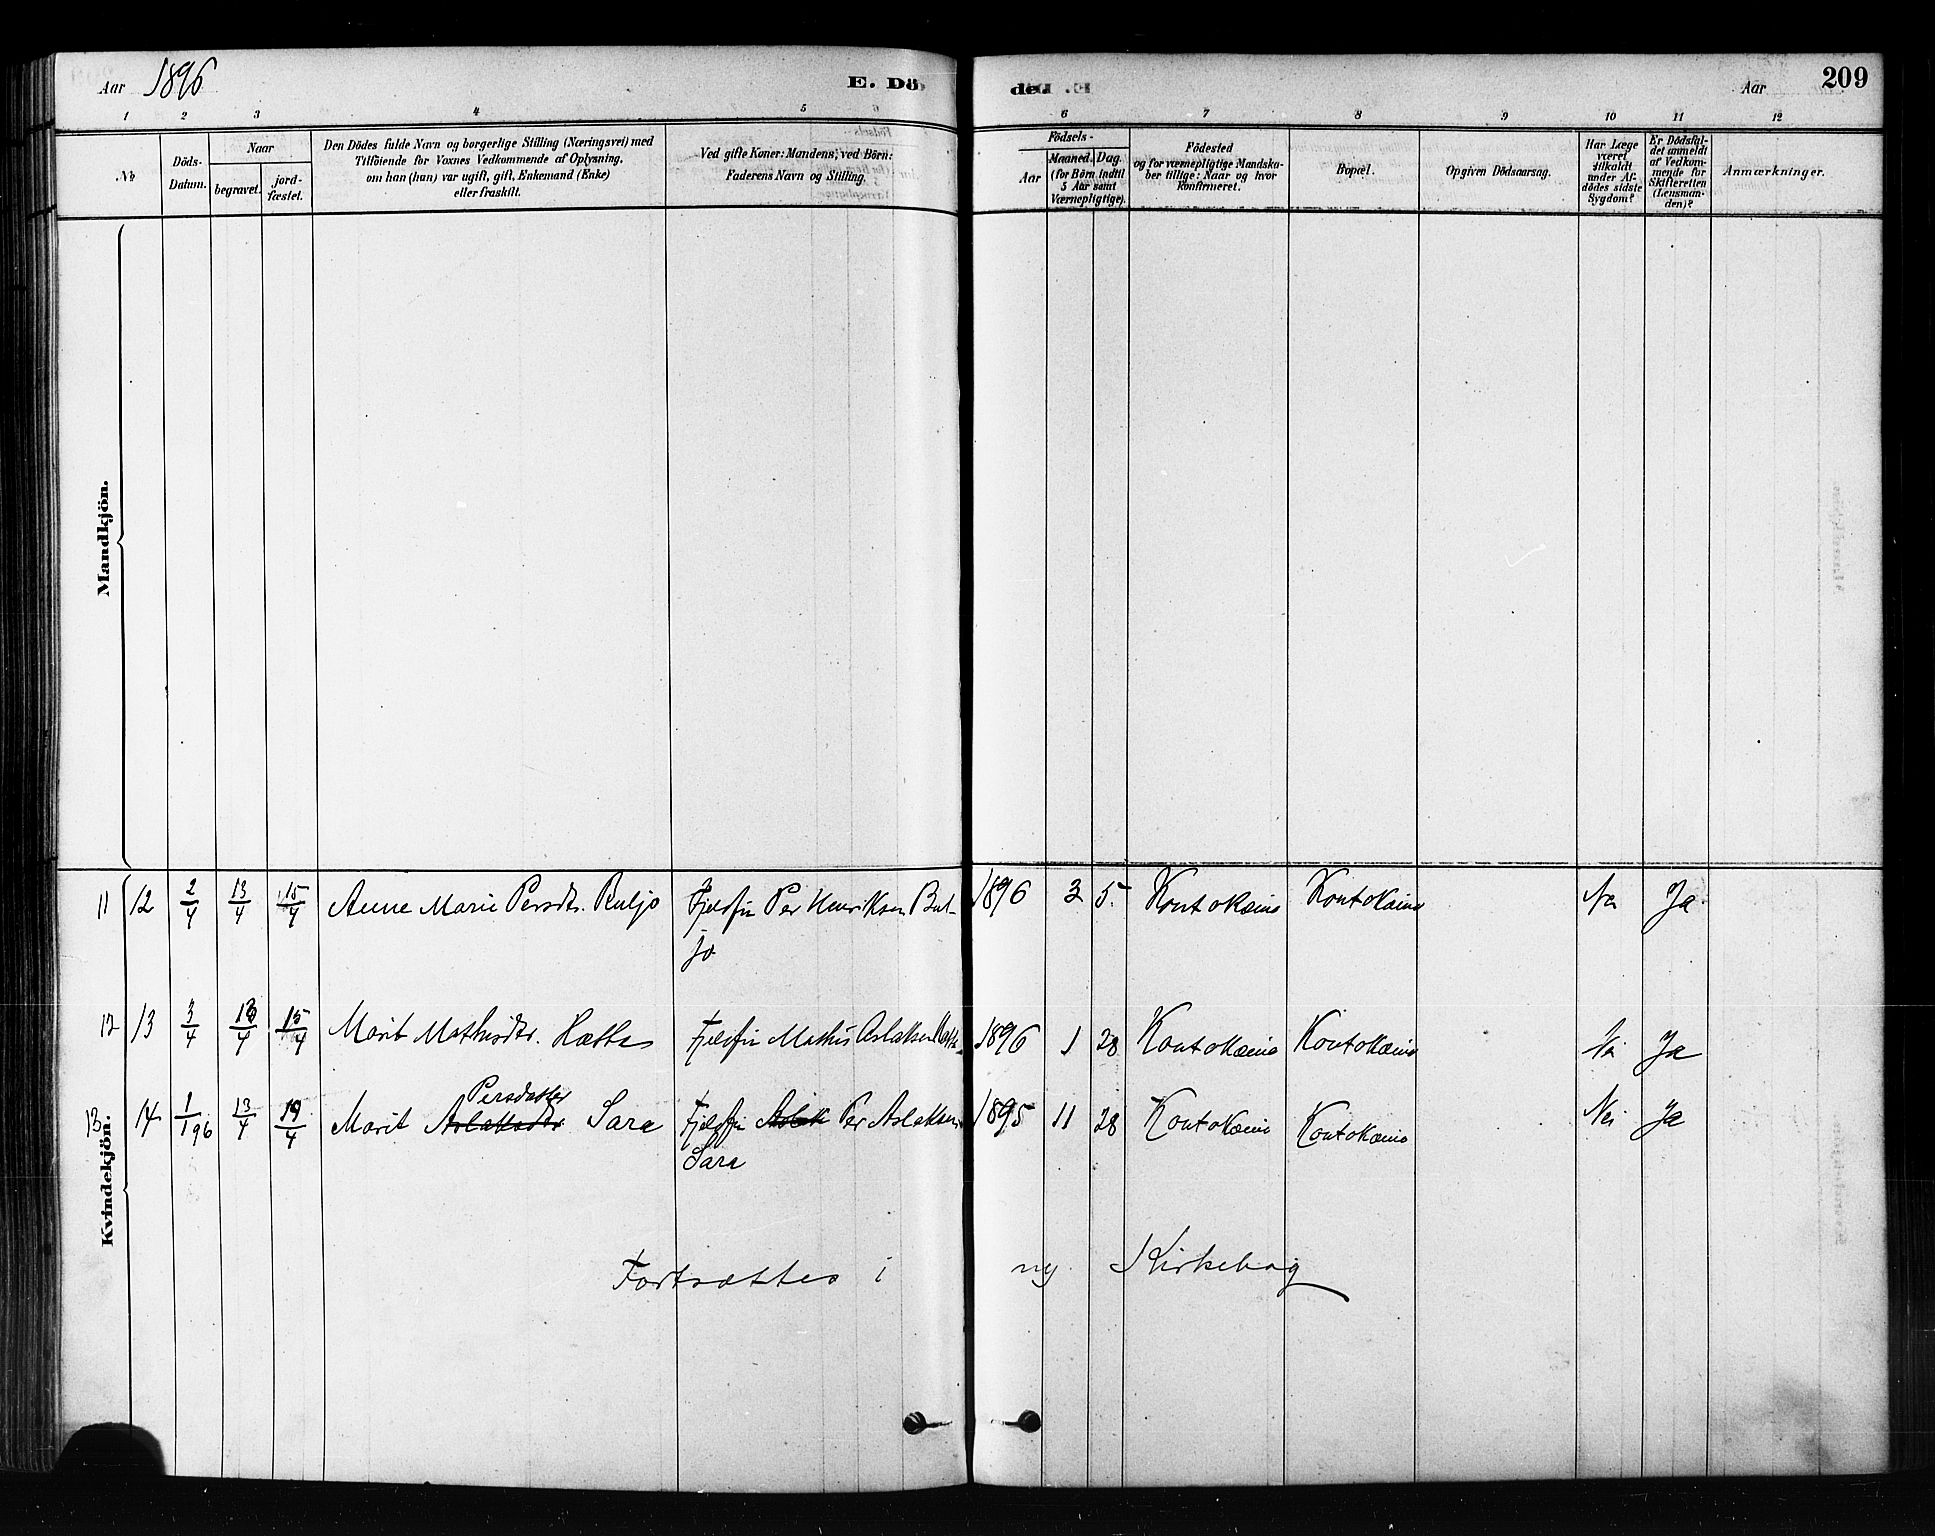 Aar 1896 E. Dö
de. Aar 209
1 2 3 4 5 6 7 8 9 10 11 12
№ Döds-Datum. Naar begravet. jordfæstet. Den Dödes fulde Navn og borgerlige Stilling (Næringsvei) med Tilföiende for Voxnes Vedkommende af Oplysning, om han (hun) var ugift, gift, Enkemand (Enke) eller fraskilt. Ved gifte Koner: Mandens, ved Börn: Faderens Navn og Stilling.
Födsels- Aar Maaned. Dag. (for Börn indtil 5 Aar samt Værnepligtige). Födested og for værnepligtige Mandskaber tillige: Naar og hvor Konfirmeret. Bopæl. Opgiven Dödsaarsag. Har Læge været tilkaldt under Afdödes sidste Sygdom? Er Dödsfaldet anmeldt af Vedkommende for Skifteretten (Lensmanden)? Anmærkninger.
Mandkjön.
11 12 2/4 13/4 15/4 Anne Marie Persdtr. Buljo Fjeldfin Per Henriksen Bul- 1896 3 5. Koutokæino Koutokæino Ja
jo
12 13 3/4 13/4 15/4 Marit Mathisdtr. Hætta Fjeldfin Mathis Aslaksen Hætta 1896 1 28 Koutokæino Koutokæino Nei Ja
Persdatter
13 14 1/1 96 13/4 19/4 Marit Aslaksdtr Sara Fjeldfin Aslak Per Aslaksen 1895 11 28 Koutokæino Koutokæino Nei Ja
Sara
Kvindekjön.
Fortsættes i ny Kirkebog